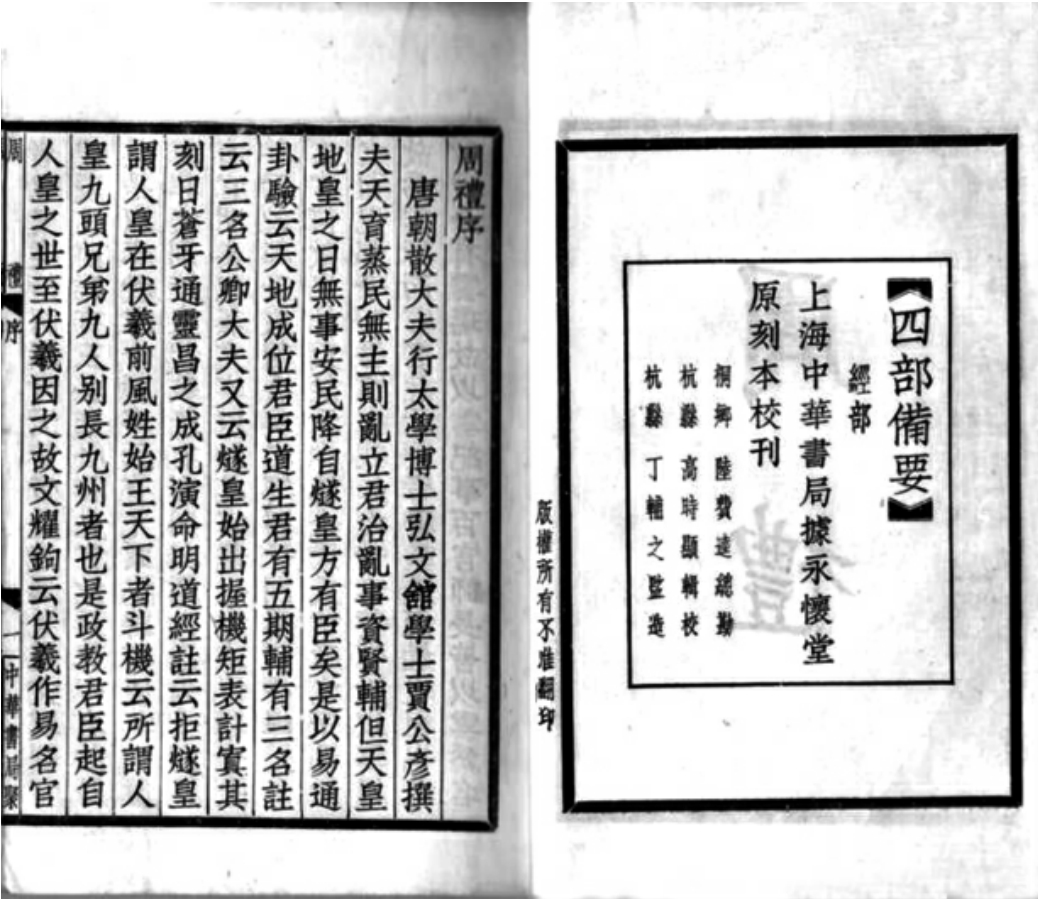 【四部備要】
經部
上海中華書局據永懷堂
原刻本校刊
桐鄉 陸費逵總勘
杭縣 高時顯輯校
杭縣 丁輔之監造
版權所有不准翻印
周禮序
唐朝散大夫行太學博士弘文館學士賈公彥撰
夫天育蒸民無主則亂立君治亂事資賢輔但天皇
地皇之日無事安民降自燧皇方有臣矣是以易通
卦驗云天地成位君臣道生君有五期輔有三名註
云三名公卿大夫又云燧皇始出握機矩表計寘其
刻日蒼牙通靈昌之成孔演命明道經註云拒燧皇
謂人皇在伏羲前風姓始王天下者斗機云所謂人
皇九頭兄弟九人別長九州者也是政教君臣起自
人皇之世至伏羲因之故文耀鉤云伏羲作易名官
周 禮 序 一 中華書局聚